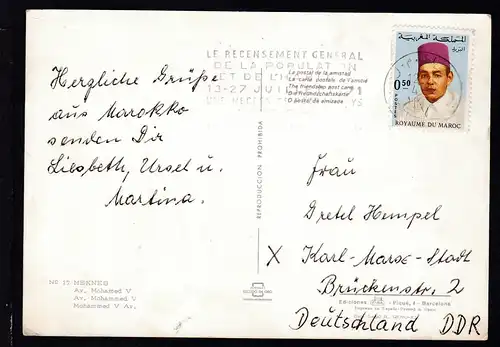 LE RECENSEMENT GENERAL
DE LA POPULATION
ET DE L'H
13-27 JUI
La postal de la amistad
La carte postale de l'amitié
The friendship post card
Die Freundschaftskarte
O postal da amizade
المملكة المغربية
البريد
0,50
POSTES
ROYAUME DU MAROC
Herzliche Grüße
aus Marokko
senden Dir
Liesbeth, Ursel u.
Martina.
REPRODUCCION PROHIBIDA
Frau
Gretel Hempel
X Karl-Marx-Stadt
Brückenstr. 2
Deutschland DDR
Nº 17 MEKNES
Av. Mohamed V
Av. Mohammed V
Mohammed V Av.
Ediciones - Piqué, 4 - Barcelona